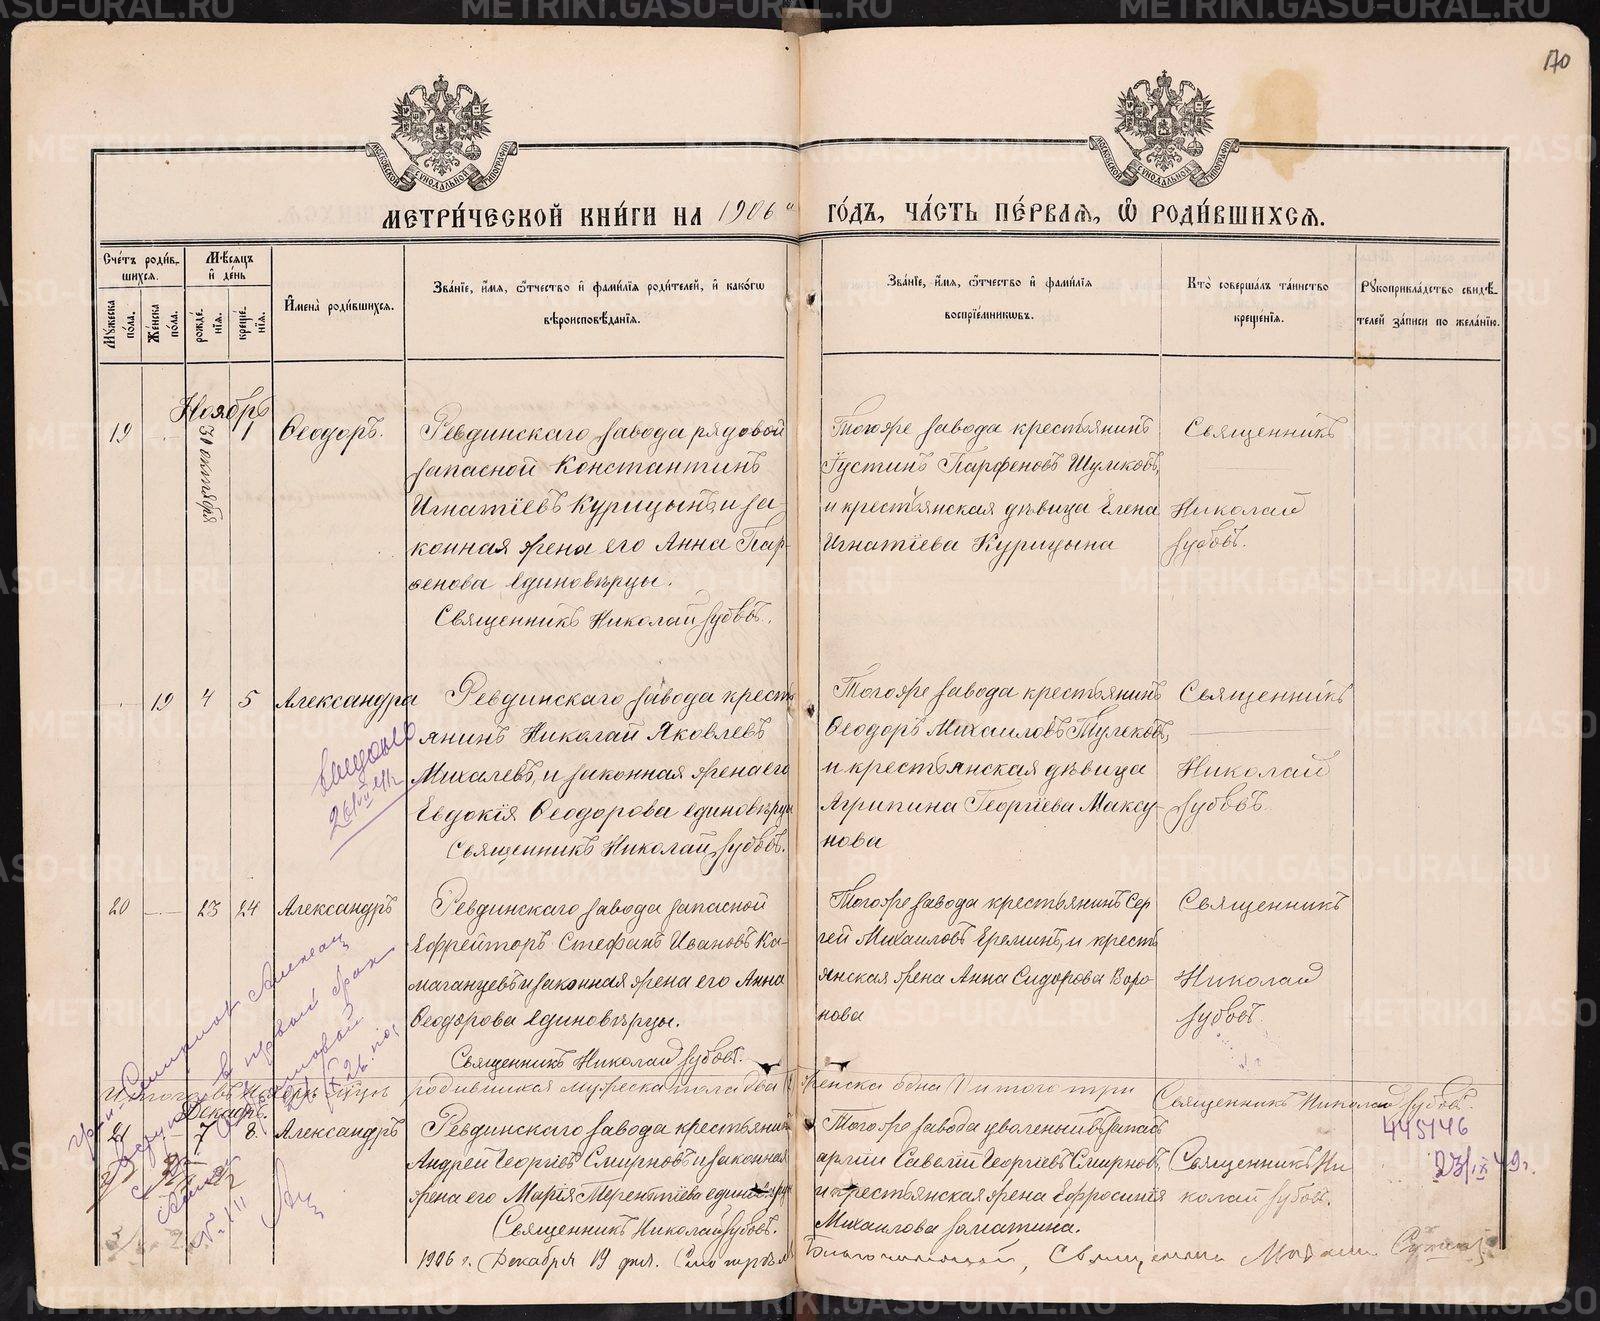 170
МОСКОВСКОЙ СУНОДАЛЬНОЙ ТИПОГРАФІИ
МОСКОВСКОЙ СУНОДАЛЬНОЙ ТИПОГРАФІИ
МЕТРИ́ЧЕСКОЙ КНИ́ГИ НА 1906 ГО́ДЪ, ЧА́СТЬ ПЕ́РВАѦ, Ѡ҆ РОДИ́ВШИХСѦ.
Сче́тъ роди́в-
шихсѧ.
Мꙋ́жеска по́ла.
Же́нска по́ла.
Мѣ́сѧцъ
и҆ де́нь
рожде́-
нїѧ.
креще́-
нїѧ.
И҆мена̀ роди́вшихсѧ.
Зва́нїе, и҆́мѧ, ѻ҆́тчество и҆ фами́лїѧ роди́телей, и҆ како́гѡ
вѣроисповѣ́данїѧ.
Зва́нїе, и҆́мѧ, ѻ҆́тчество и҆ фами́лїѧ
воспрїе́мникѡвъ.
Кто̀ соверша́лъ та́инство
креще́нїѧ.
Рꙋкоприкла́дство свидѣ́-
телей за́писи по жела́нїю.
Ноябрь
19 31 октября 1 Ѳеодоръ.
Ревдинскаго завода рядовой
запасной Константинъ
Игнатіевъ Курицынъ и за-
конная жена его Анна Пар-
ѳенова единовѣрцы.
Священникъ Николай Зубовъ.
Тогоже завода крестьянинъ
Іустинъ Парфеновъ Шумковъ,
и крестьянская дѣвица Елена
Игнатіева Курицына
Священникъ
Николай
Зубовъ.
19 4 5 Александра
Ревдинскаго завода кресть
янинъ Николай Яковлевъ
Михалевъ, и законная жена его
Евдокія Ѳеодорова единовѣрцы
Священникъ Николай Зубовъ.
Тогоже завода крестьянинъ
Ѳеодоръ Михаиловъ Тулековъ,
и крестьянская дѣвица
Агрипина Георгіева Максу-
нова
Священникъ
Николай
Зубовъ
20 23 24 Александръ
Ревдинскаго завода запасной
Ефрейторъ Стефанъ Ивановъ Ка-
маганцевъ и законная жена его Анна
Ѳеодорова единовѣрцы.
Священникъ Николай Зубовъ.
Тогоже завода крестьянинъ Сер
гей Михаиловъ Ереминъ, и кресть
янская жена Анна Сидорова Воро
нова
Священникъ
Николай
Зубовъ.
Итого въ Ноябрѣ родившихся мужеска пола два, женска одна итого три Священникъ Николай Зубовъ.
Декабрь.
21 7 8 Александръ
Ревдинскаго завода крестьянинъ
Андрей Георгіевъ Смирновъ и законная
жена его Марія Терентіева единовѣрцы
Священникъ Николай Зубовъ.
Тогоже завода уволенный въ запасъ
арміи Савелій Георгіевъ Смирновъ,
и крестьянская жена Ефросинія
Михаилова Заматина.
Священникъ Ни
колай Зубовъ.
445146
1906 г. Декабря 19 дня. Благочинный, Священникъ
METRIKI.GASO-URAL.RU